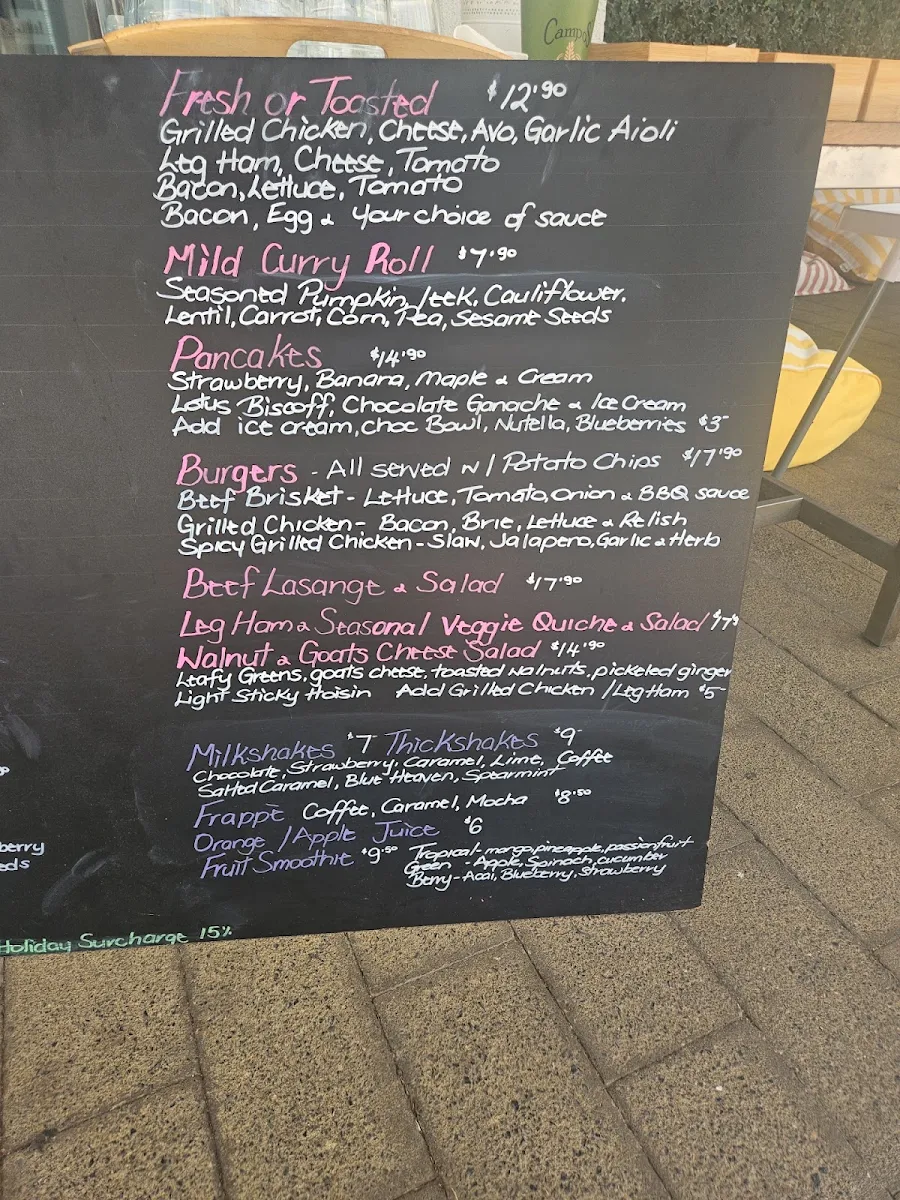 Campo
Fresh or Toasted $12.90
Grilled Chicken, Cheese, Avo, Garlic Aioli
Leg Ham, Cheese, Tomato
Bacon, Lettuce, Tomato
Bacon, Egg & your choice of sauce
Mild Curry Roll $7.90
Seasoned Pumpkin, leek, Cauliflower,
Lentil, Carrot, Corn, Pea, Sesame Seeds
Pancakes $14.90
Strawberry, Banana, Maple & Cream
Lotus Biscoff, Chocolate Ganache & Ice Cream
Add ice cream, choc Bowl, Nutella, Blueberries $3-
Burgers - All served w/ Potato Chips $17.90
Beef Brisket - Lettuce, Tomato, onion & BBQ sauce
Grilled Chicken - Bacon, Brie, Lettuce & Relish
Spicy Grilled Chicken - Slaw, Jalapeno, Garlic & Herb
Beef Lasange & Salad $17.90
Leg Ham & Seasonal Veggie Quiche & Salad
Walnut & Goats Cheese Salad $14.90
Leafy Greens, goats cheese, toasted walnuts, pickeled ginger
Light Sticky Hoisin Add Grilled Chicken / Leg Ham $5-
Milkshakes $7- Thickshakes $9-
Chocolate, Strawberry, Caramel, Lime, Coffee
Salted Caramel, Blue Heaven, Spearmint
Frappè Coffee, Caramel, Mocha $8.50
Orange / Apple Juice $6
Fruit Smoothie $9.50 Tropical - mango, pineapple, passionfruit
Green - Apple, Spinach, cucumber
Berry - Acai, Blueberry, Strawberry
berry
eds
Holiday Surcharge 15%